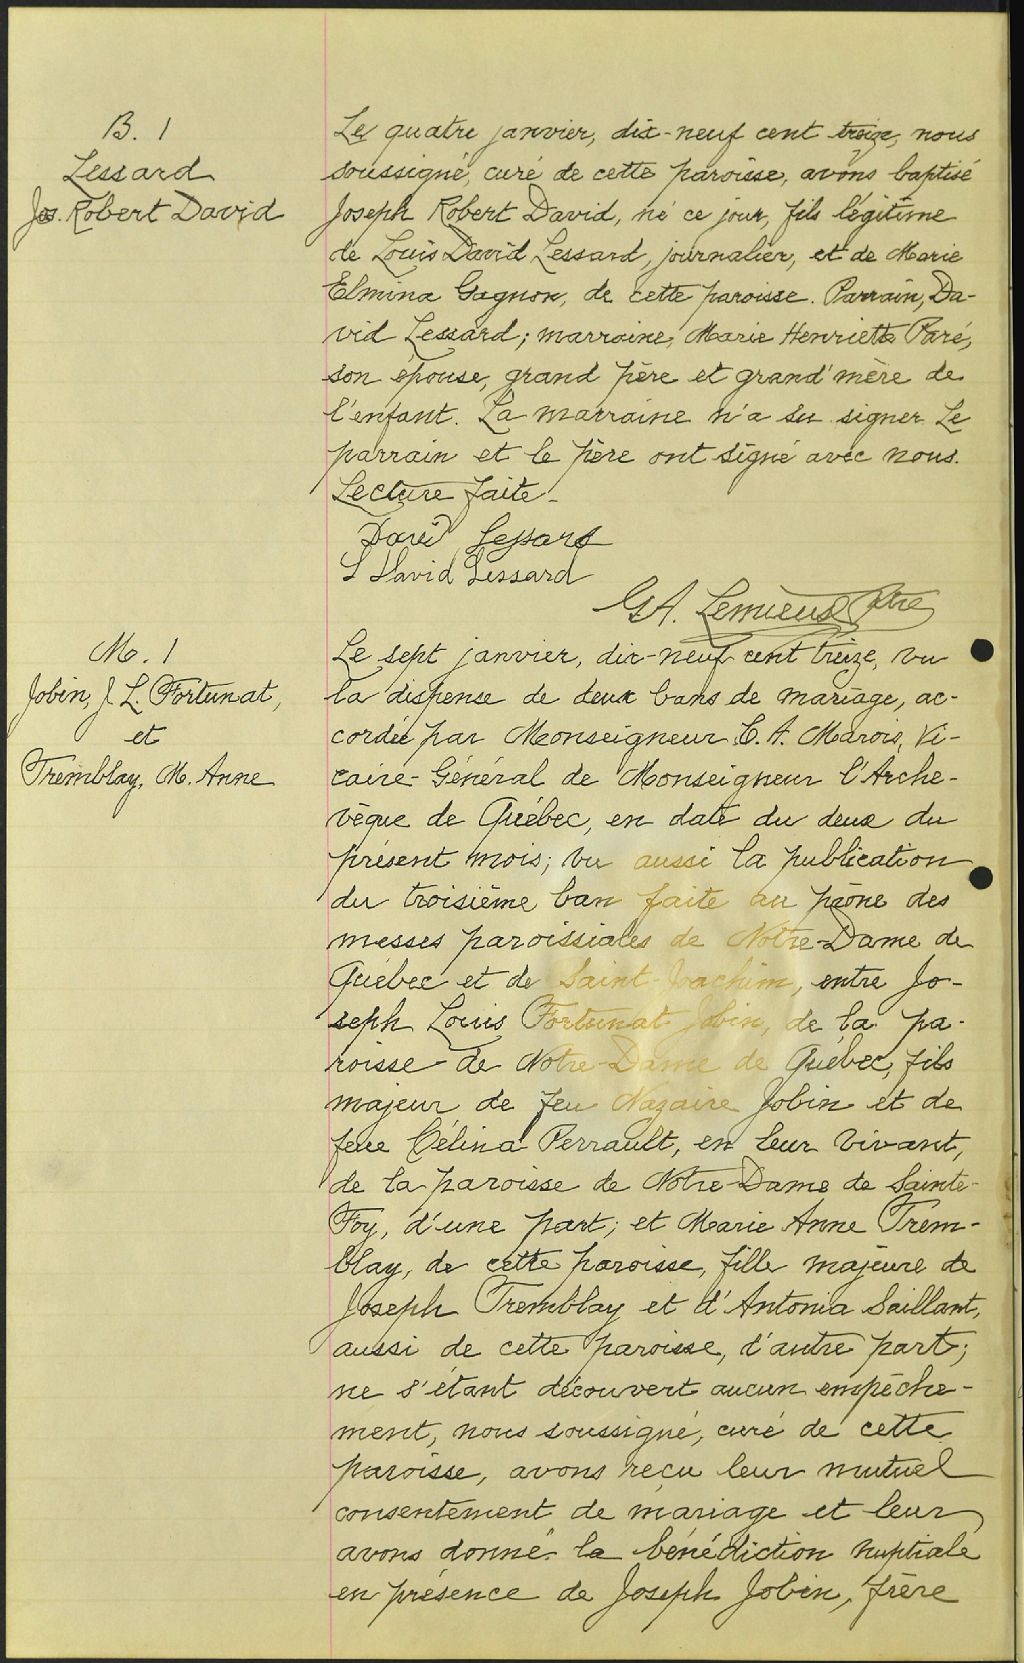 B. 1
Lessard
Jos. Robert David
Le quatre janvier, dix-neuf cent treize, nous
soussigné, curé de cette paroisse, avons baptisé
Joseph Robert David, né ce jour, fils légitime
de Louis David Lessard, journalier, et de Marie
Elmina Gagnon, de cette paroisse. Parrain, Da-
vid Lessard; marraine, Marie Henriette Paré,
son épouse, grand père et grand'mère de
l'enfant. La marraine n'a su signer. Le
parrain et le père ont signé avec nous.
Lecture faite.
David Lessard
L David Lessard
G.A. Lemieux Ptre
M. 1
Jobin, J. L. Fortunat,
et
Tremblay, M. Anne
Le sept janvier, dix-neuf cent treize, vu
la dispense de deux bans de mariage, ac-
cordée par Monseigneur C. A. Marois, Vi-
caire-Général de Monseigneur l'Arche-
vêque de Québec, en date du deux du
présent mois; vu aussi la publication
du troisième ban faite au prône des
messes paroissiales de Notre-Dame de
Québec et de Saint-Joachim, entre Jo-
seph Louis Fortunat Jobin, de la pa-
roisse de Notre-Dame de Québec, fils
majeur de feu Nazaire Jobin et de
feue Célina Perrault, en leur vivant,
de la paroisse de Notre-Dame de Sainte-
Foy, d'une part; et Marie Anne Trem-
blay, de cette paroisse, fille majeure de
Joseph Tremblay et d'Antonia Saillant,
aussi de cette paroisse, d'autre part;
ne s'étant découvert aucun empêche-
ment, nous soussigné, curé de cette
paroisse, avons reçu leur mutuel
consentement de mariage et leur
avons donné la bénédiction nuptiale
en présence de Joseph Jobin, frère